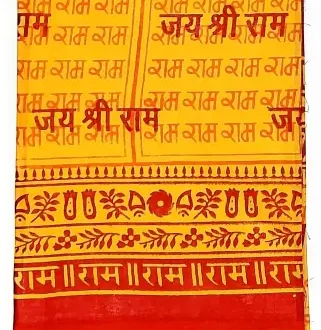 राम जय श्री राम
राम राम राम राम राम राम राम
राम राम राम राम राम राम राम
राम राम राम राम राम राम राम
जय श्री राम जय
राम राम राम राम राम राम राम
राम॥राम॥राम॥राम॥राम